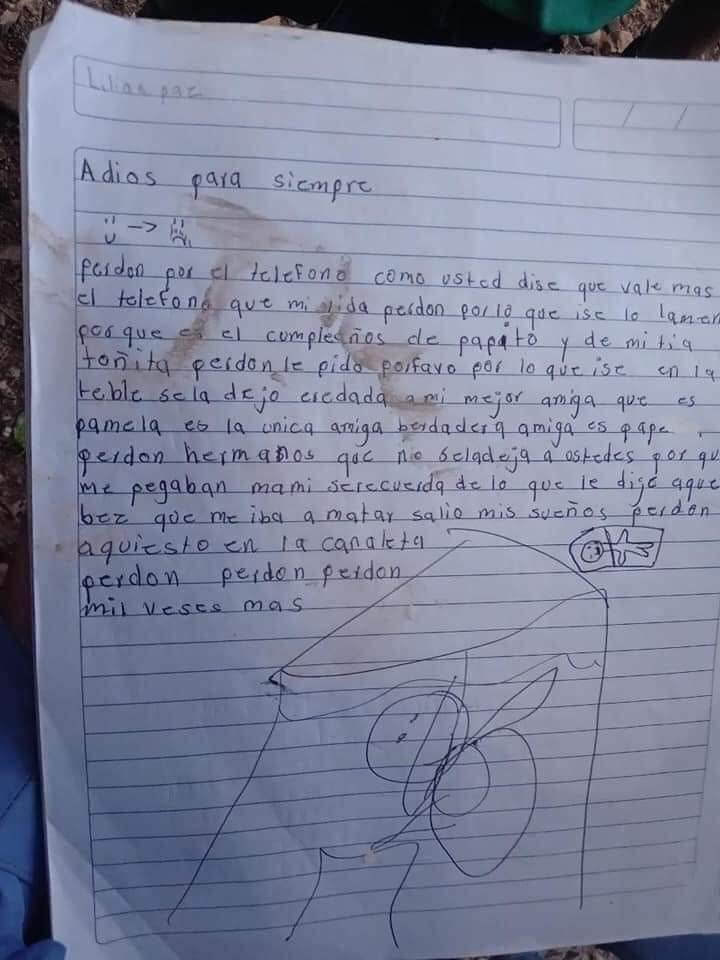 Lilian paz
Adios para siempre
perdon por el telefono como usted dise que vale mas
el telefono que mi vida perdon por lo que ise lo lamen
porque es el cumpleaños de papito y de mi tia
toñita perdon le pido porfavo por lo que ise en la
teble se la dejo eredada a mi mejor amiga que es
pamela es la unica amiga berdadera amiga es pape
perdon hermanos que no seladeja a ostedes por qu
me pegaban mami serecuerda de lo que le dije aque
bez que me iba a matar salio mis sueños perdon
aquiesto en la canaleta
perdon perdon perdon
mil veses mas